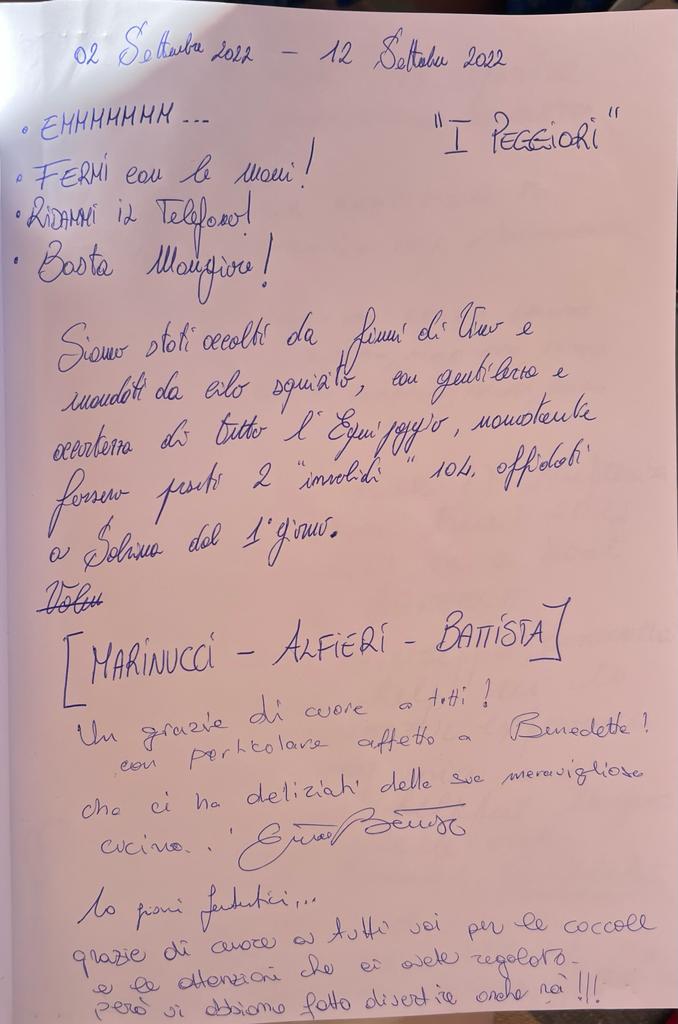 02 Settembre 2022 - 12 Settembre 2022
"I PEGGIORI"
• EHHHHHHH...
• FERMI con le mani!
• RIDAMMI il Telefono!
• Basta Mangiare!
Siamo stati accolti da fiumi di Vino e
mandati da cibo squisito, con gentilezza e
accortezza di tutto l'Equipaggio, nonostante
fossero presenti 2 "invalidi" 104. affidati
a Sabrina dal 1° giorno.
[MARINUCCI - ALFIERI - BATTISTA]
Un grazie di cuore a tutti!
con particolare affetto a Benedetta!
che ci ha deliziati delle sue meravigliose
cucina..
10 giorni fantastici...
grazie di cuore a tutti voi per le coccole
e le attenzioni che ci avete regalato.
però vi abbiamo fatto divertire anche noi!!!